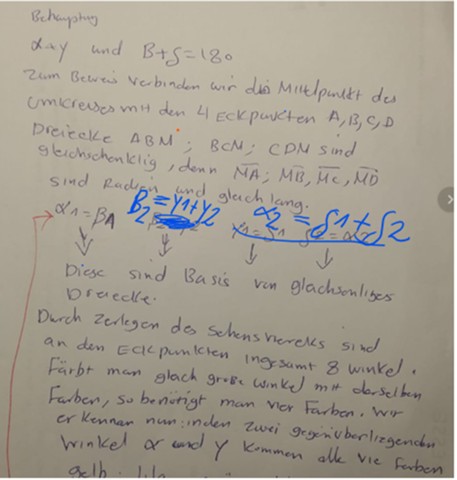 Behauptung
α+y und B+δ=180
Zum Beweis verbinden wir die Mittelpunkt des
Umkreises mit den 4 Eckpunkten A, B, C, D
Dreiecke ABM ; BCM; CDM sind
gleichschenklig, denn MA; MB, MC, MD
sind Radien und gleich lang.
α1 = βA B2 = y1+y2 α2 = δ1+δ2
Diese sind Basis von
Dreiecke.
Durch Zerlegen des sind
an den Eckpunkten insgesamt 8 winkel.
Färbt man glach große winkel mit derselben
Farben, so benötigt man vier Farben. Wir
erkennen nun: inden zwei gegenüberliegenden
Winkel α und y kommen alle vie Farben
gelb